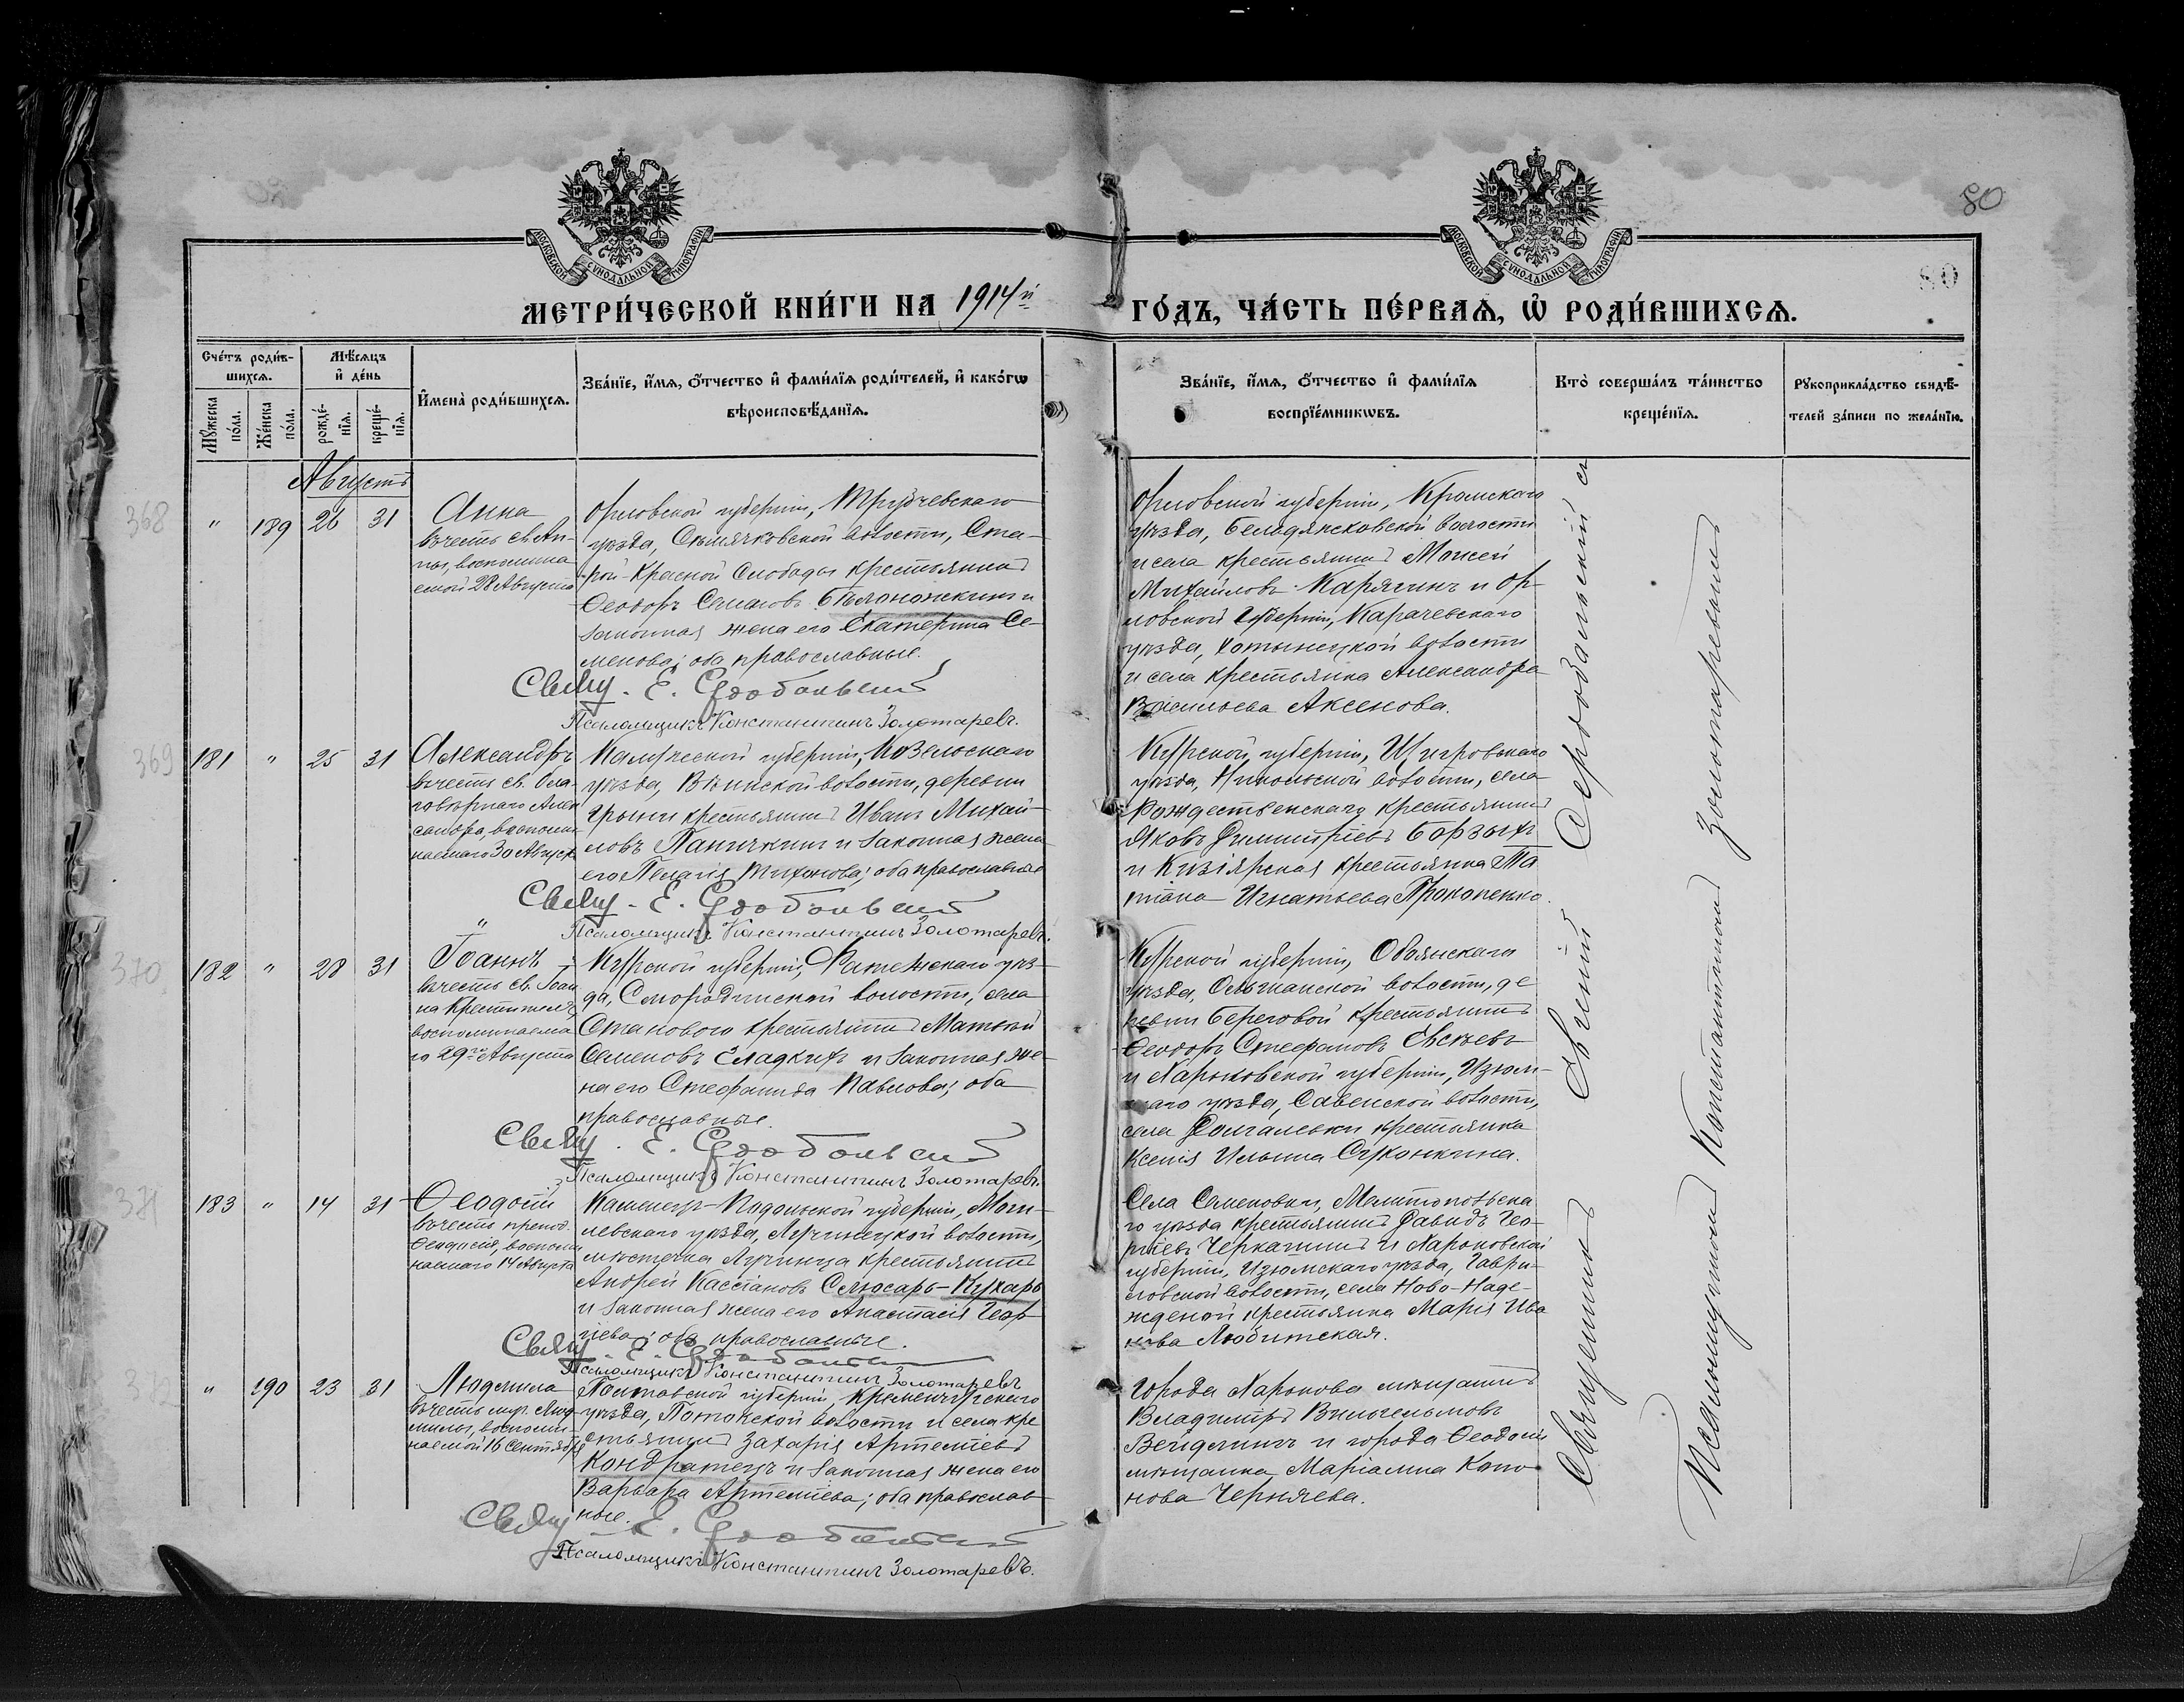 80
80
МОСКОВСКОЙ СѴНОДАЛЬНОЙ ТИПОГРАФІИ
МОСКОВСКОЙ СѴНОДАЛЬНОЙ ТИПОГРАФІИ
МЕТРИ́ЧЕСКОЙ КНИ́ГИ НА 1914й
ГО́ДЪ, ЧА́СТЬ ПЕ́РВАѦ, Ѽ РОДИ́ВШИХСѦ.
Сче́тъ роди́в-
шихся.
Мѣ́сяцъ
и҆ де́нь
Му́жеска
по́ла.
Же́нска
по́ла.
рожде́-
нїя.
креще́-
нїя.
И҆мена̀ роди́вшихся.
Зва́нїе, и҆́мя, ѻ҆́тчество и҆ фами́лїя роди́телей, и҆ како́гѡ
вѣроисповѣ́данїя.
Зва́нїе, и҆́мя, ѻ҆́тчество и҆ фами́лїя
воспрїе́мникѡвъ.
Кто̀ соверша́лъ та́инство
креще́нїя.
Рꙋкоприкла́дство свидѣ́-
телей за́писи по жела́нїю.
Августъ
368
"
189
26
31
Анна
въ честь св. Ан-
ны, воспомина
емой 28 Августа
Орловской губерніи, Трубчевскаго
уѣзда, Селячковской волости, Ста-
рой-Красной Слободы крестьянинъ
Ѳеодоръ Симаковъ Бѣлоножкинъ и
законная жена его Екатерина Се-
менова; оба православные.
Псаломщикъ Константинъ Золотаревъ.
Орловской губерніи, Кромскаго
уѣзда, волости
и села крестьянинъ Моисей
Михайловъ Карягинъ и Ор-
ловской губерніи, Карачевскаго
уѣзда, Хотынецкой волости
и села крестьянка Александра
Васильева Аксенова.
369
181
"
25
31
Александръ
въ честь св. Бла-
говѣрнаго Алек
сандра, воспоми
наемаго 30 Августа
Калужской губерніи, Козельскаго
уѣзда, волости, деревни
крестьянинъ Иванъ Михай-
ловъ Паничкинъ и законная жена
его Пелагія Тихонова; оба православные
Псаломщикъ Константинъ Золотаревъ.
Курской губерніи, Щигровскаго
уѣзда, Никольской волости, села
Рождественскаго крестьянинъ
Яковъ Димитріевъ Борзыхъ
и Кизіярская крестьянка Та
тіана Игнатьева Прокопенко.
370
182
"
28
31
Іоаннъ
въ честь св. Іоан
на Крестителя,
воспоминаема
го 29го Августа
Курской губерніи, Фатежскаго уѣз-
да, Смородинской волости, села
Становаго крестьянинъ Матѳій
Семеновъ Сладкихъ и законная же-
на его Стефанида Павлова; оба
православные.
Псаломщикъ Константинъ Золотаревъ.
Курской губерніи, Обоянскаго
уѣзда, Ольшанской волости, де
ревни Береговой крестьянинъ
Ѳеодоръ Стефановъ Евсѣевъ
и Харьковской губерніи, Изюм-
скаго уѣзда, Савенской волости,
села Долгалевки крестьянка
Ксенія Ильина Суконкина.
371
183
"
14
31
Ѳеодосій
въ честь препод.
Ѳеодосія, воспоми
наемаго 14 Августа
Каменецъ-Подольской губерніи, Моги-
левскаго уѣзда, Лучинецкой волости,
мѣстечка Лучинца крестьянинъ
Андрей Кассіановъ Слюсарь-Кухарь
и законная жена его Анастасія Геор-
гіева; оба православные.
Псаломщикъ Константинъ Золотаревъ
Села Семеновки, Мелитопольска
го уѣзда крестьянинъ Давидъ Гео-
ргіевъ Черкашинъ и Харьковской
губерніи, Изюмскаго уѣзда, Гаври-
ловской волости, села Ново-Наде-
ждиной крестьянка Марія Ива
нова Любитская.
"
190
23
31
Людмила
въ честь муч. Люд-
милы, воспоми-
наемой 16 Сентября
Полтавской губерніи, Кременчугскаго
уѣзда, Потокской волости и села кре
стьянинъ Захарія Артеміевъ
Кондратецъ и законная жена его
Варвара Артеміева; оба православ
ные.
Псаломщикъ Константинъ Золотаревъ.
Города Харькова мѣщанинъ
Владиміръ Вильгельмовъ
Вейдлингъ и города Ѳеодосіи
мѣщанка Маріамна Коно
нова Черняева.
Священникъ Евгеній
Псаломщикъ Константинъ Золотаревъ